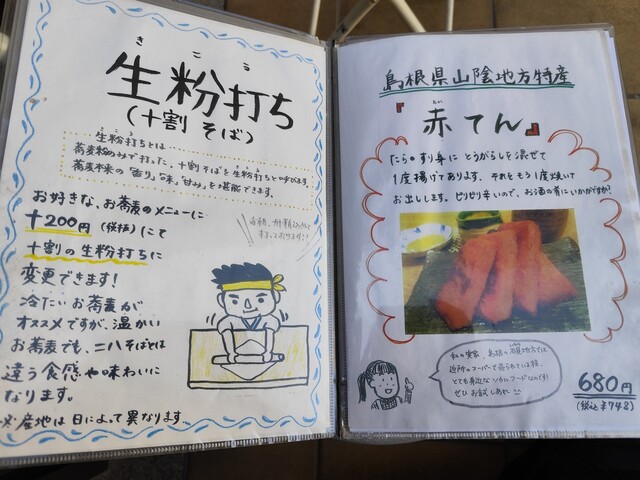 きこう
生粉打ち
(十割そば)
生粉打ちとは…
蕎麦粉のみで打った、十割そばを生粉打ちと呼びます。
蕎麦本来の「香り」「味」「甘み」を堪能できます。
お好きな、お蕎麦のメニューに
+200円(税抜)にて
十割の生粉打ちに
変更できます!
冷たいお蕎麦が
オススメですが、温かい
お蕎麦でも、二八そばとは
違う食感や味わいに
なります。
※産地は日によって異なります。
島根県山陰地方特産
『赤てん』
たらのすり身に とうがらしを混ぜて
1度揚げてあります。それをもう1度焼いて
お出しします。ピリピリ辛いので、お酒の肴にいかがですか?
私の実家、島根の石見地方では
近所のスーパーで売られている程、
とても身近なソウルフードなんです!
ぜひお試しあれ
680円
(税込¥748)